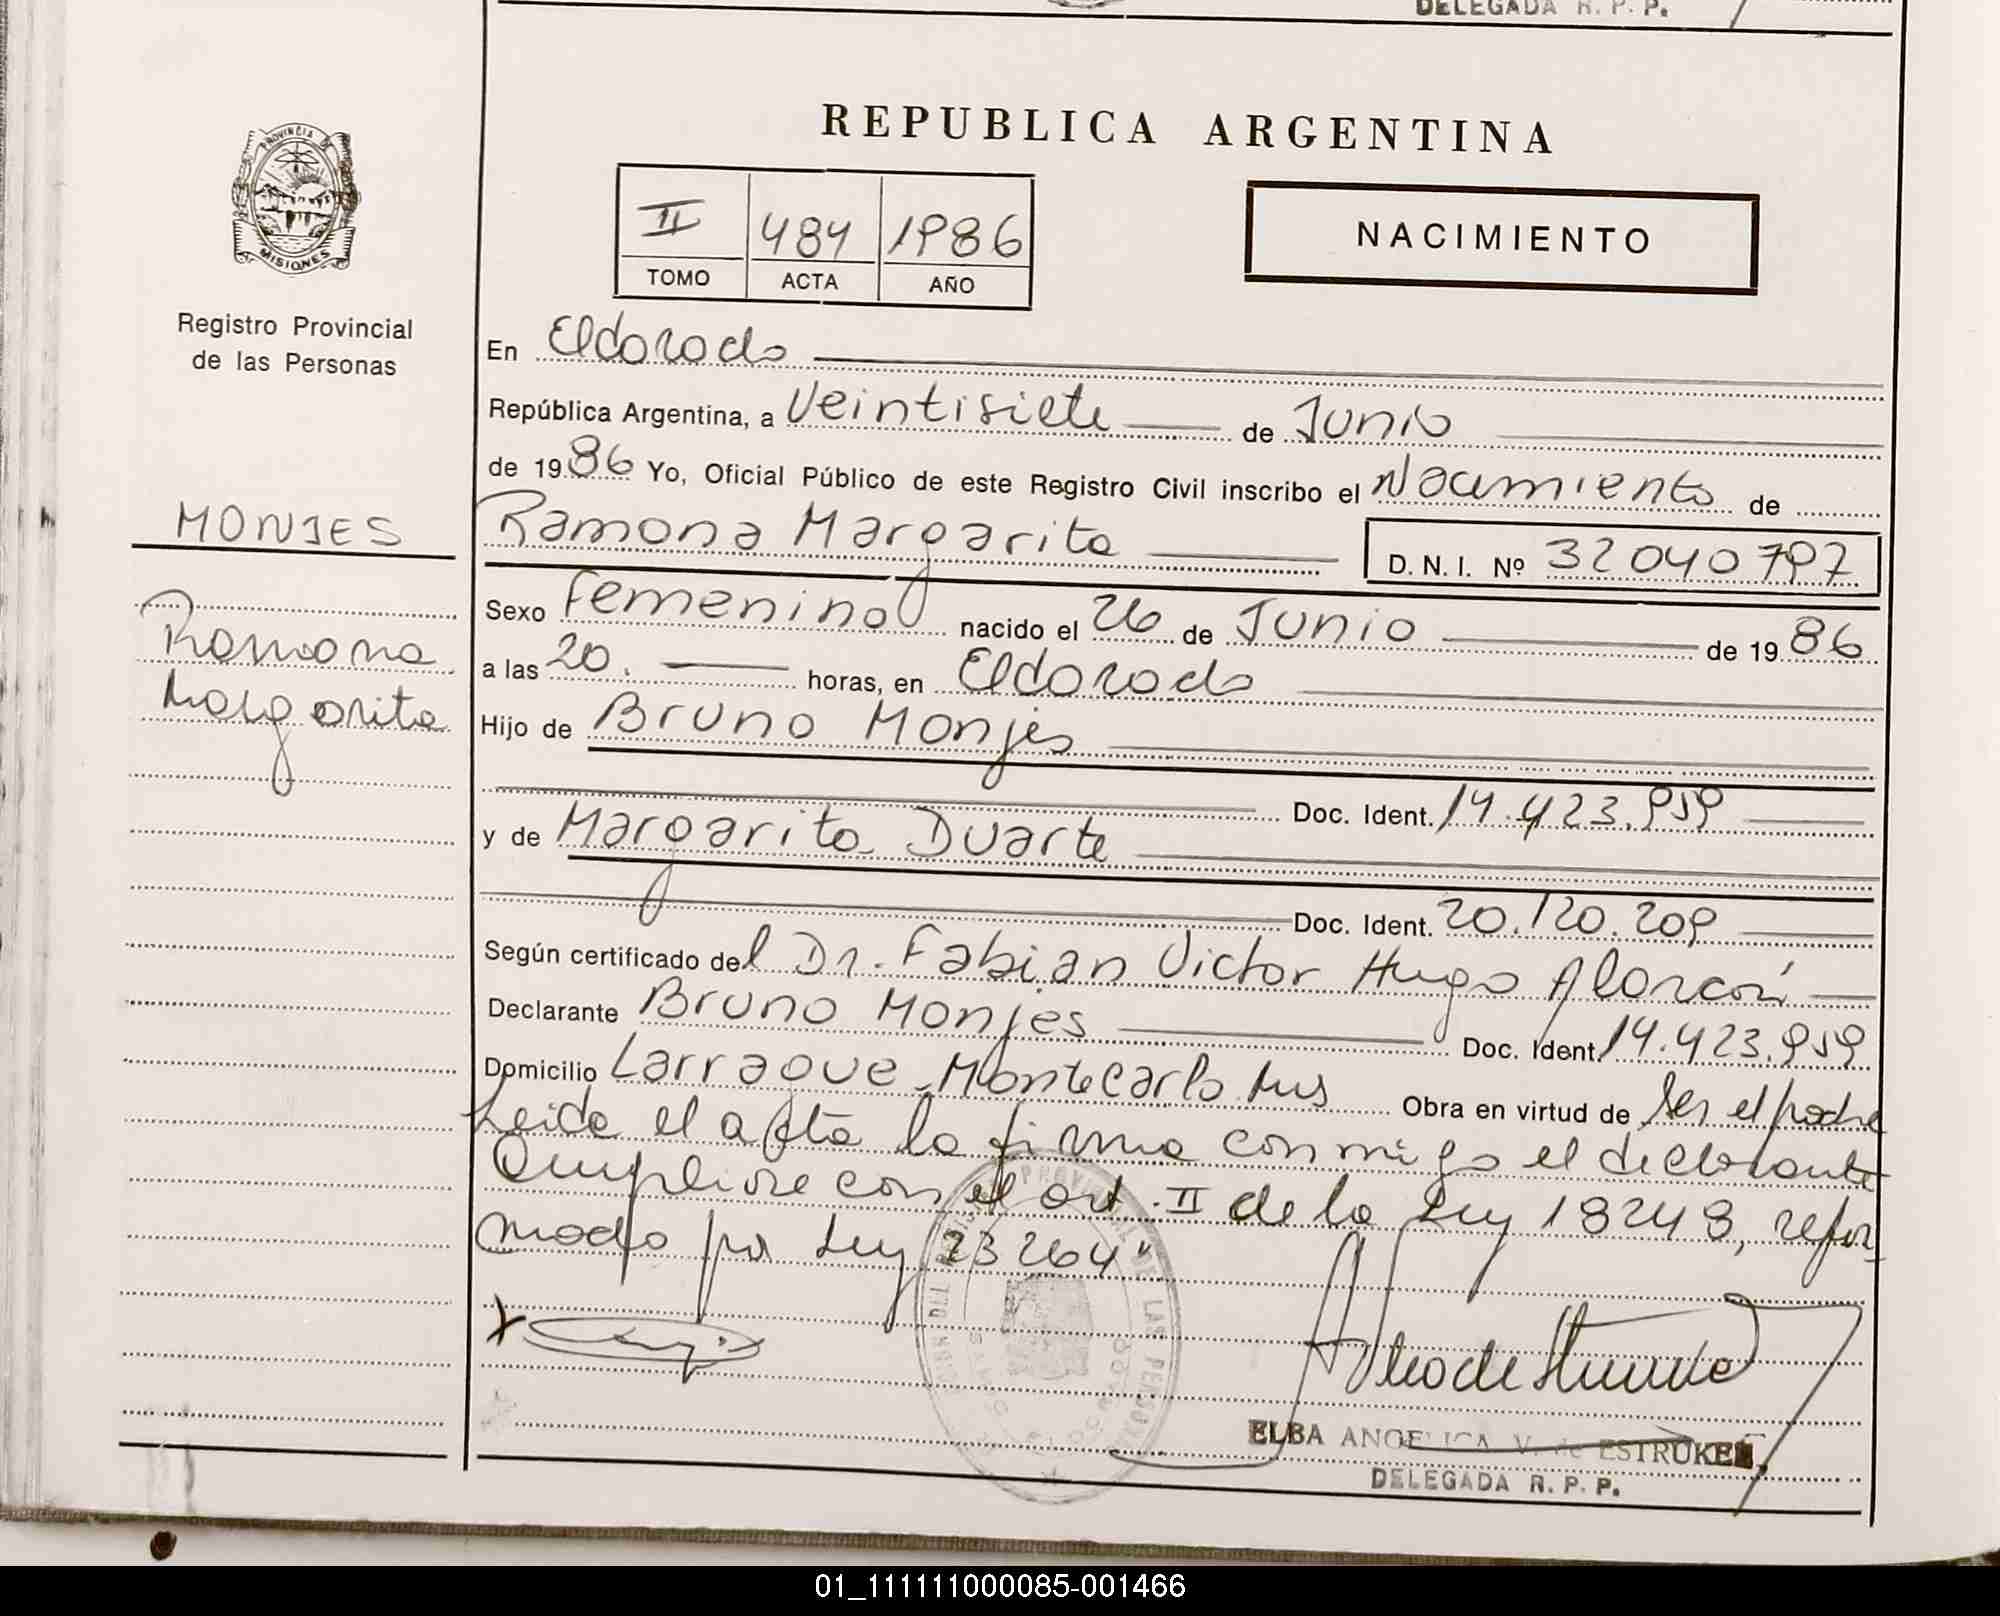 DELEGADA R. P. P.
REPUBLICA ARGENTINA
PROVINCIA DE
MISIONES
Registro Provincial
de las Personas
II 484 1986
TOMO ACTA AÑO
NACIMIENTO
En Eldorado
República Argentina, a Veintisiete de Junio
de 1986 Yo, Oficial Público de este Registro Civil inscribo el Nacimiento de
MONJES
Ramona Margarita D. N. I. Nº 32040797
Ramona
Margarita
Sexo Femenino nacido el 26 de Junio de 1986
a las 20. horas, en Eldorado
Hijo de Bruno Monjes
Doc. Ident. 14.423.959
y de Margarita Duarte
Doc. Ident. 20.120.209
Según certificado del Dr. Fabian Victor Hugo Alarcón
Declarante Bruno Monjes Doc. Ident. 14.423.959
Domicilio Larraque - Montecarlo Mns Obra en virtud de ser el padre
Leida el acta la firma conmigo el declarante
Cumpliose con el art. II de la Ley 18248, refor-
mada por Ley 23264"
ELBA ANGELICA V. de ESTRUKEL
DELEGADA R. P. P.
01_111111000085-001466